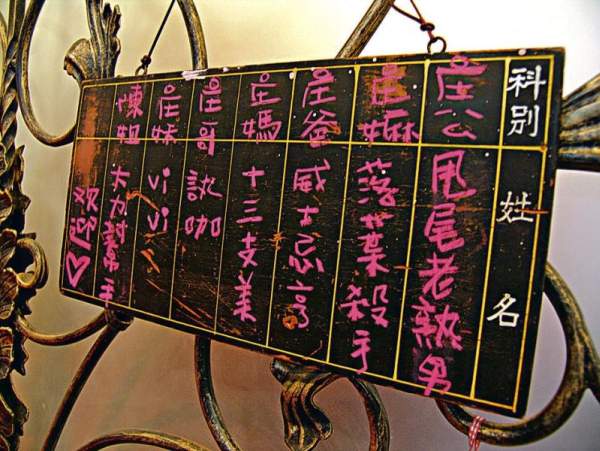 科別 姓名
庄公 甩尾老熟男
庄嫲 落葉殺手
庄爸 威士忌亨
庄媽 十三支美
庄哥 訙咖
庄妹 ViVi
陳姐 大力好幫手
欢迎♡